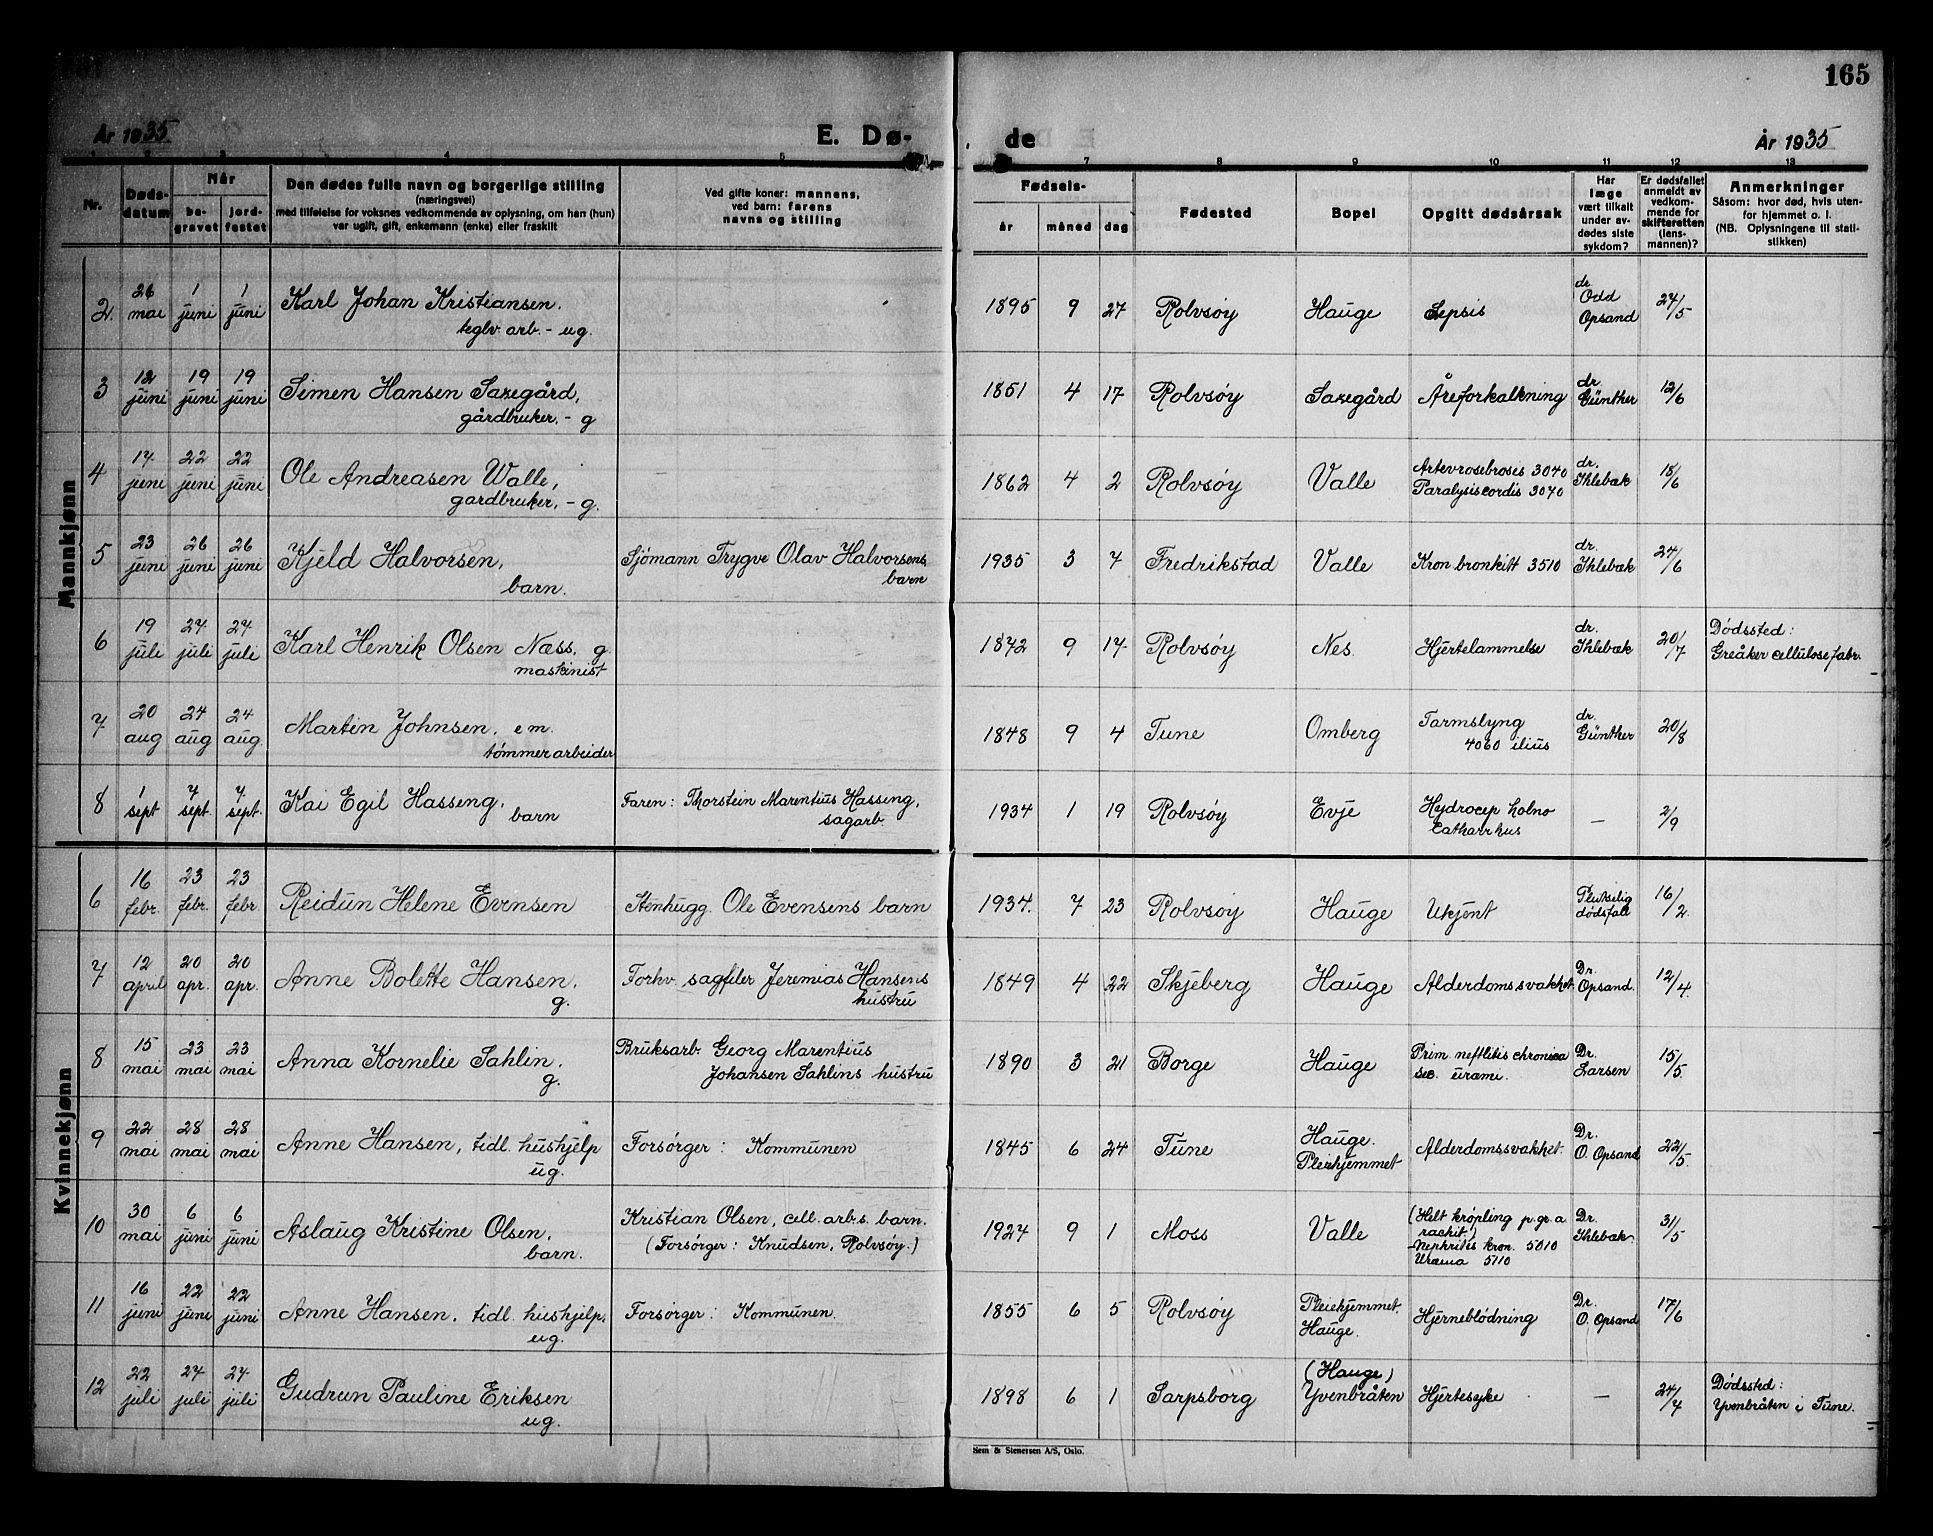 165
År 1935 E. Dø- de År 1935
1 2 3 4 5 7 8 9 10 11 12 13
Nr. | Døds-datum | Når be-gravet | jord-festet | Den dødes fulle navn og borgerlige stilling (næringsvei) med tilføielse for voksnes vedkommende av oplysning, om han (hun) var ugift, gift, enkemann (enke) eller fraskilt | Ved gifte koner: mannens, ved barn: farens navns og stilling | Fødsels- år | måned | dag | Fødested | Bopel | Opgitt dødsårsak | Har læge vært tilkalt under av-dødes siste sykdom? | Er dødsfallet anmeldt av vedkom-mende for skifteretten (lens-mannen)? | Anmerkninger Såsom: hvor død, hvis uten-for hjemmet o. l. (NB. Oplysningene til stati-stikken)
Mannkjønn
2. | 26 mai | 1 juni | 1 juni | Karl Johan Kristiansen. teglv. arb. - ug. | | 1895 | 9 | 27 | Rolvsøy | Hauge | Sepsis | dr. Odd Opsand | 27/5
3 | 12 juni | 19 juni | 19 juni | Simen Hansen Saxegård, gårdbruker, - g | | 1851 | 4 | 17 | Rolvsøy | Saxegård | Åreforkalkning | dr. Günther | 12/6
4 | 17. juni | 22 juni | 22 juni | Ole Andreasen Walle, gardbruker, - g. | | 1862 | 4 | 2 | Rolvsøy | Valle | Artevrosebrosis 3040 Paralysis cordis 3070 | dr. Ihlebæk | 18/6
5 | 23 juni | 26 juni | 26 juni | Kjeld Halvorsen, barn. | Sjömann Trygve Olav Halvorsens barn | 1935 | 3 | 7 | Fredrikstad | Valle | Kron bronkitt 3510 | dr. Ihlebæk | 24/6
6 | 19 juli | 24. juli | 24. juli | Karl Henrik Olsen Næss, g. maskinist | | 1872 | 9 | 17. | Rolvsøy | Nes. | Hjertelammelse | dr. Ihlebæk | 20/7 | Dødssted: Greåker cellulosefabr.
7 | 20 aug | 24 aug | 24 aug. | Martin Johnsen, e m. tömmerarbeider | | 1848 | 9 | 4 | Tune | Omberg | Tarmslyng 4060 ilius | dr. Günther | 20/8
8 | 1 sept | 7 sept. | 7. sept. | Kai Egil Hasseng, barn | Faren: Thorstein Marentius Hasseng, sagarb. | 1934 | 1 | 19 | Rolvsøy | Evje | Hydrocep holno Catharrhus | — | 2/9
Kvinnekjønn
6 | 16 febr. | 23 febr. | 23 febr. | Reidun Helene Evensen | Stenhugg. Ole Evensens barn | 1934. | 7 | 23 | Rolvsøy | Hauge | Ukjent | Plutselig dødsfall | 16/2.
7 | 12 april | 20 apr. | 20 apr. | Anne Bolette Hansen, g. | Forhv. sagfiler Jeremias Hansens hustru | 1849 | 4 | 22 | Skjeberg | Hauge | Alderdomssvakhet. | Dr. Opsand. | 12/4.
8 | 15 mai | 23 mai | 23 mai | Anna Kornelie Sahlin, g. | Bruksarb. Georg Marentius Johansen Sahlins hustru | 1890 | 3 | 21 | Borge | Hauge | Prim. neftlitis chronica sec. urämi. | Dr. Larsen | 15/5.
9 | 22 mai | 28 mai | 28 mai | Anne Hansen, tidl. hushjelp ug. | Forsørger: Kommunen | 1845 | 6 | 24 | Tune | Hauge. Pleiehjemmet | Alderdomssvakhet. | Dr. O. Opsand | 22/5.
10 | 30 mai | 6 juni | 6 juni | Aslaug Kristine Olsen, barn. | Kristian Olsen, cell. arb.s. barn. (Forsørger: Knudsen, Rolvsøy.) | 1924 | 9 | 1 | Moss | Valle | (Helt krøpling p. gr. a rachit.) Nephritis kron. 5010 Uræmia 5110 | Dr. Ihlebæk | 31/5
11 | 16 juni | 22 juni | 22 juni | Anne Hansen, tidl. hushjelp, ug. | Forsørger: Kommunen. | 1855 | 6 | 5 | Rolvsøy | Pleiehjemmet. Hauge. | Hjerneblödning | Dr. O. Opsand | 17/6
12 | 22 juli | 27 juli | 27. juli | Gudrun Pauline Eriksen ug. | | 1898 | 6 | 1 | Sarpsborg | (Hauge) Yvenbråten | Hjertesyke | — | 24/7 | Dødssted: Yvenbråten i Tune.
Sem & Stenersen A/S, Oslo.